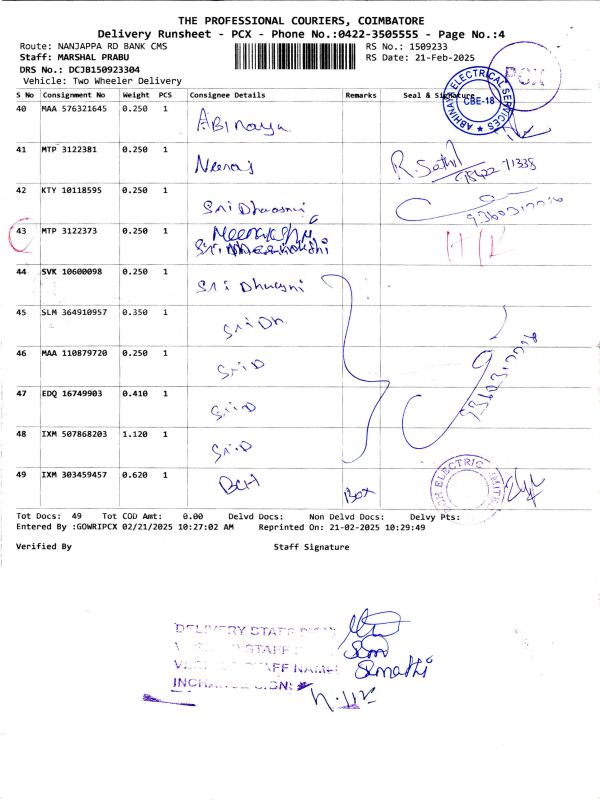 THE PROFESSIONAL COURIERS, COIMBATORE
Delivery Runsheet - PCX - Phone No.:0422-3505555 - Page No.:4
Route: NANJAPPA RD BANK CMS RS No.: 1509233
Staff: MARSHAL PRABU RS Date: 21-Feb-2025
DRS No.: DCJB150923304
Vehicle: Two Wheeler Delivery
PCX
ABHINAV ELECTRICAL SERVICES
CBE-18
S No Consignment No Weight PCS Consignee Details Remarks Seal & Signature
40 MAA 576321645 0.250 1 Abinaya
41 MTP 3122381 0.250 1 Neeraj R. Sathil
42 KTY 10118595 0.250 1 Sri Dharsni
43 MTP 3122373 0.250 1 Meenakshi
44 SVK 10600098 0.250 1 Sri Dharsni
45 SLM 364910957 0.350 1 Sri Dh.
46 MAA 110879720 0.250 1 Sri D
47 EDQ 16749903 0.410 1 Sri D
48 IXM 507868203 1.120 1 Sri D
49 IXM 303459457 0.620 1 BCH Box
Tot Docs: 49 Tot COD Amt: 0.00 Delvd Docs: Non Delvd Docs: Delvy Pts:
Entered By :GOWRIPCX 02/21/2025 10:27:02 AM Reprinted On: 21-02-2025 10:29:49
Verified By Staff Signature
DELIVERY STAFF SIGN:
STAFF
STAFF NAME: Sumathi
INCHARGE SIGN: